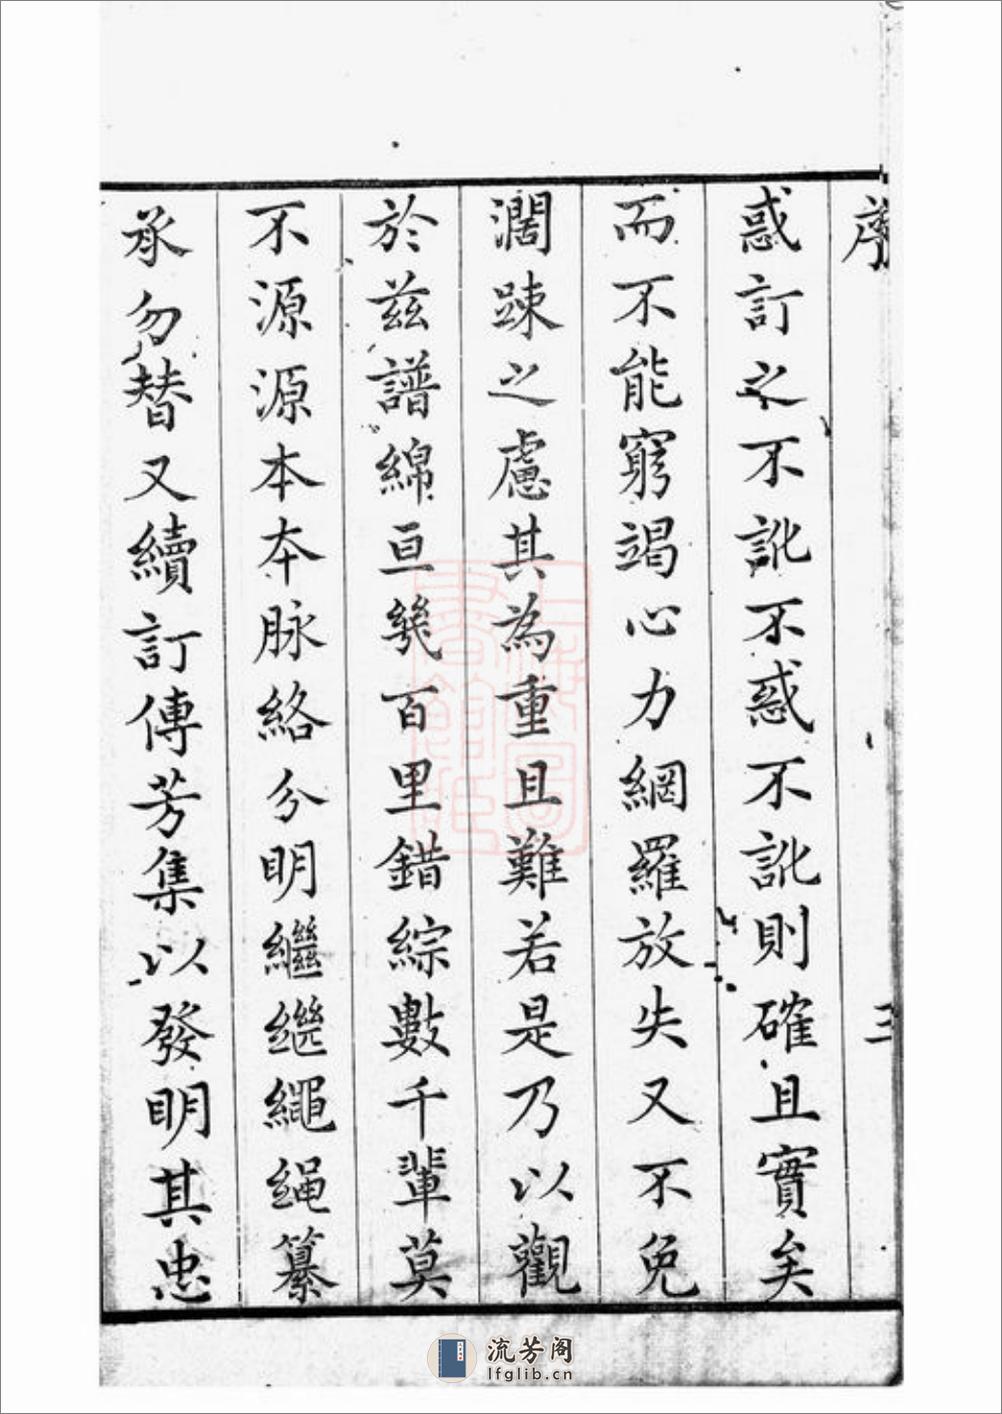 序
三
惑訂之不訛不惑不訛則確且實矣
而不能窮竭心力網羅放失又不免
濶踈之慮其為重且難若是乃以觀
於兹譜綿亘幾百里錯綜數千輩莫
不源源本本脉絡分明繼継繩绳纂
承勿替又續訂傳芳集以發明其忠
上海圖
書館藏
流芳阁
lfglib.cn